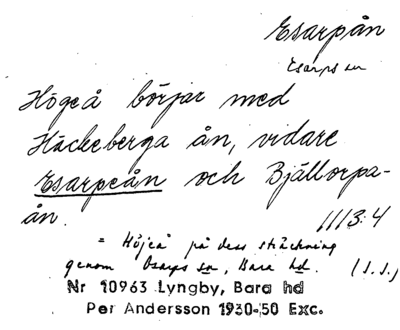 Esarpån
Esarps sn
Högeå börjar med
Häckeberga ån, vidare
Esarpeån och Bjällorpa-
ån.
1113:4
= Höjeå på dess sträckning
genom Esarps sn, Bara hd. (S.S.)
Nr 10963 Lyngby, Bara hd
Per Andersson 1930-50 Exc.